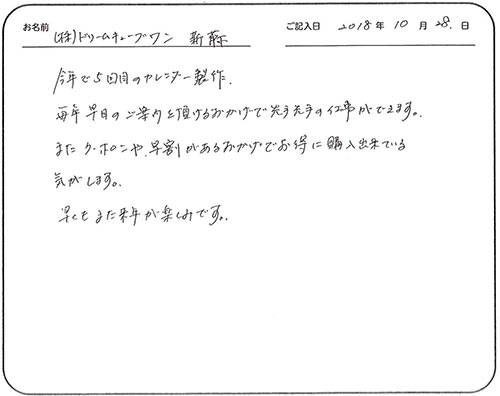 お名前 (株)ドリームチューブワン 新藤 ご記入日 2018年 10月 28.日
今年で5回目のカレンダー製作。
毎年早目のご案内を頂けるおかげで先手先手の仕事ができます。
またクーポンや、早割があるおかげでお得に購入出来ている
気がします。
早くもまた来年が楽しみです。